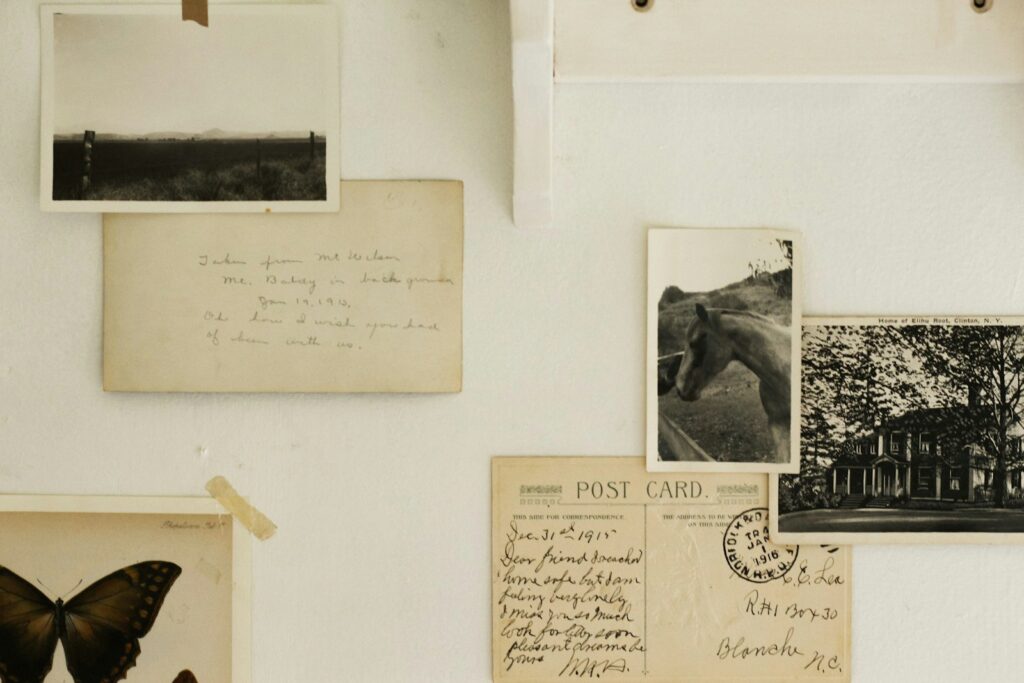 Taken from Mt Wilson
Mt. Baldy in back ground
Jan 19, 1913.
Oh how I wish you had
of been with us.
Home of Elihu Root, Clinton, N. Y.
POST CARD.
THIS SIDE FOR CORRESPONDENCE
THE ADDRESS TO BE
ON THIS SIDE
Dec. 31st 1915
Dear friend I reached
home safe but I am
feling very lonely
I miss you so much
look for
soon
pleasant dreams be
yours
NORFOLK
JAN
1
1916
R.P.O.
C. E. Lea
R#1 Box 30
Blanche N.C.